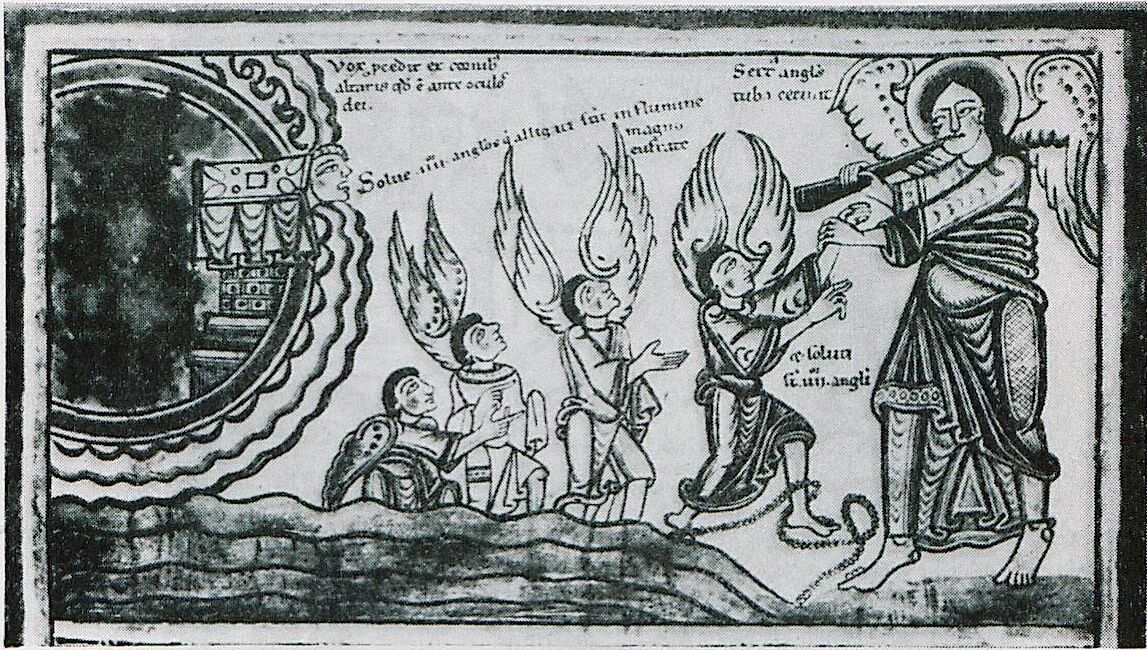 Vox pcedit ex cornib'
altaris qd ē ante oculos
dei.
Sext' angl's
tuba cecinit
Solue .iiii. anglos q alligati sūt in flumine
magno
eufrate
& soluti
sī .iiii. angli